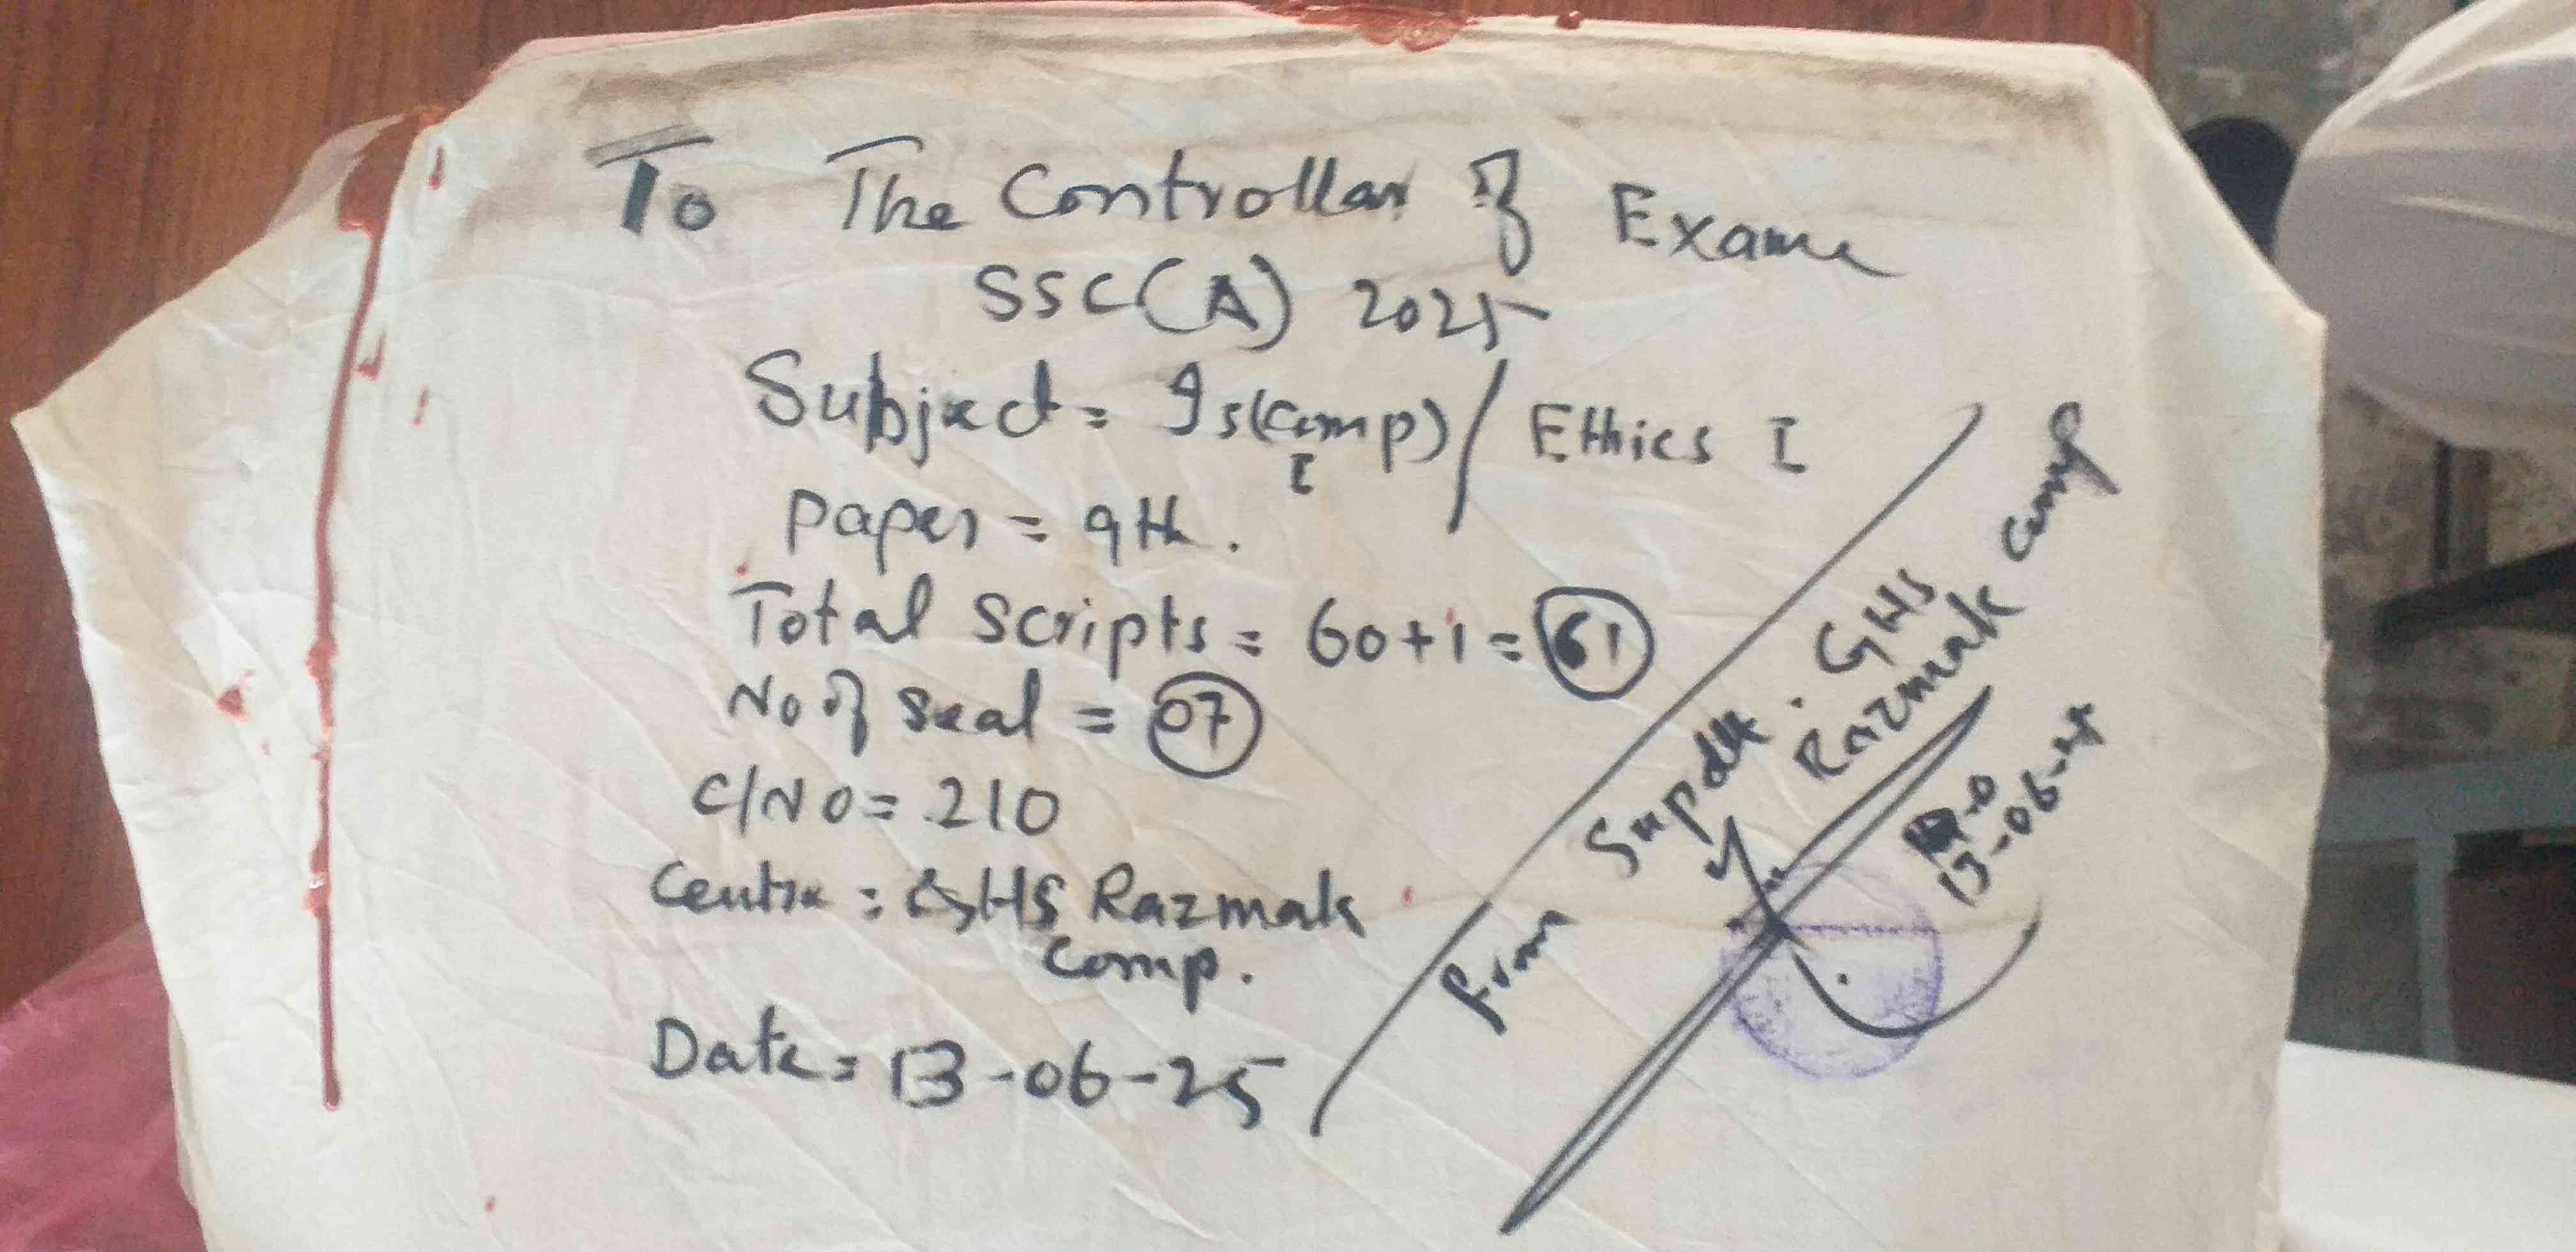 To The Controllar of Exame
SSC(A) 2025
Subject = Is(Comp) I / Ethics I
Paper = 9th.
Total Scripts = 60+1 = 61
No of Seal = 07
C/NO = 210
Centre : GHS Razmak
Comp.
Date = 13-06-25
From Supdtt. GHS
Razmak Comp
13-06-25